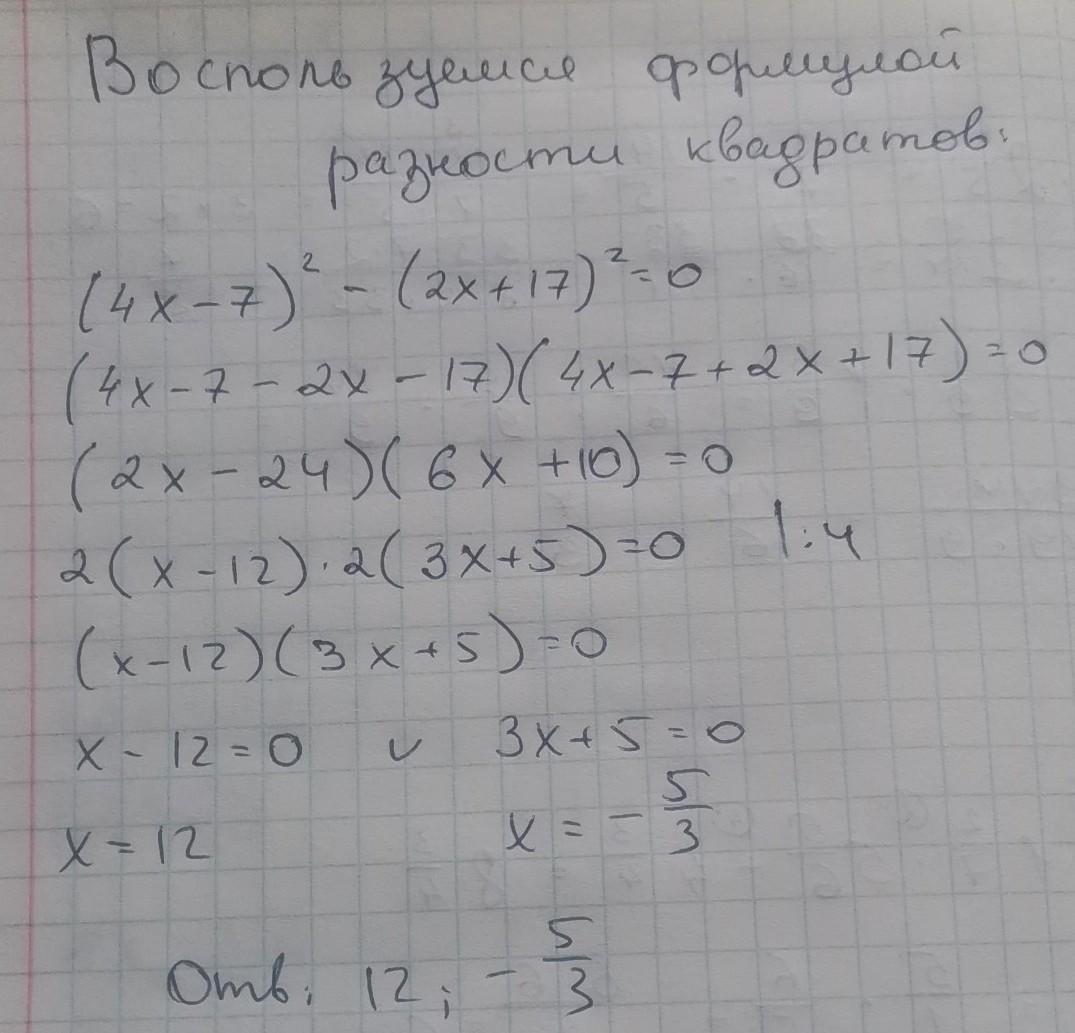 Воспользуемся формулой
разности квадратов:
(4x-7)² - (2x+17)²=0
(4x-7-2x-17)(4x-7+2x+17)=0
(2x-24)(6x+10)=0
2(x-12)·2(3x+5)=0 |:4
(x-12)(3x+5)=0
x-12=0 ∨ 3x+5=0
x=12 x=-5/3
Отв: 12; -5/3